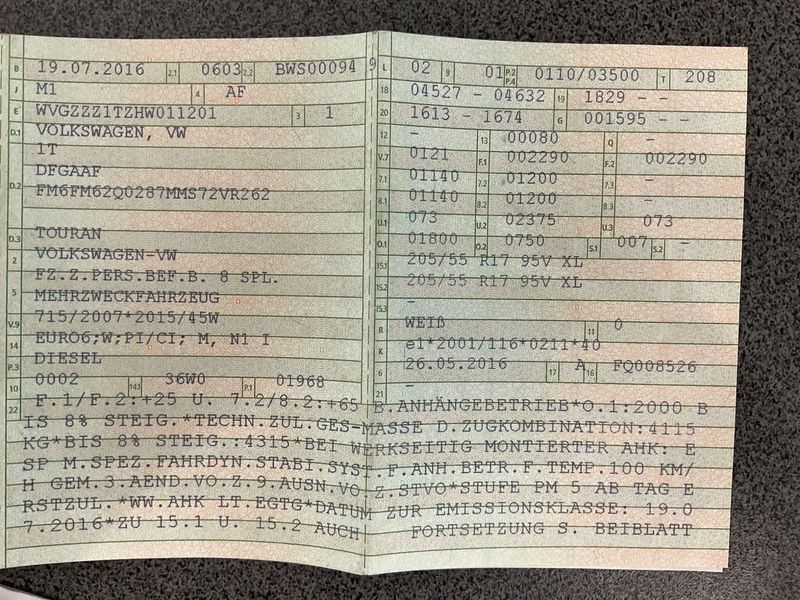 B 19.07.2016 2.1 0603 2.2 BWS00094 9
J M1 4 AF
E WVGZZZ1TZHW011201 3 1
D.1 VOLKSWAGEN, VW
1T
D.2 DFGAAF
FM6FM62Q0287MMS72VR262
D.3 TOURAN
2 VOLKSWAGEN-VW
5 FZ.Z.PERS.BEF.B. 8 SPL.
MEHRZWECKFAHRZEUG
V.9 715/2007*2015/45W
14 EURO6;W;PI/CI; M, N1 I
P.3 DIESEL
10 0002 14.1 36W0 P.1 01968
L 02 9 01 P.2 P.4 0110/03500 T 208
18 04527 - 04632 19 1829 - -
20 1613 - 1674 G 001595 - -
12 - 13 00080 Q -
V.7 0121 F.1 002290 F.2 002290
7.1 01140 7.2 01200 7.3 -
8.1 01140 8.2 01200 8.3 -
U.1 073 U.2 02375 U.3 073
O.1 01800 O.2 0750 S.1 007 S.2 -
15.1 205/55 R17 95V XL
15.2 205/55 R17 95V XL
15.3 -
R WEIß 11 0
K e1*2001/116*0211*40
6 26.05.2016 17 A 16 FQ008526
21 -
22 F.1/F.2:+25 U. 7.2/8.2:+65 B.ANHÄNGEBETRIEB*O.1:2000 B
IS 8% STEIG.*TECHN.ZUL.GES-MASSE D.ZUGKOMBINATION:4115
KG*BIS 8% STEIG.:4315*BEI WERKSEITIG MONTIERTER AHK: E
SP M.SPEZ.FAHRDYN.STABI.SYST.F.ANH.BETR.F.TEMP.100 KM/
H GEM.3.AEND.VO.Z.9.AUSN.VO.Z.STVO*STUFE PM 5 AB TAG E
RSTZUL.*WW.AHK LT.EGTG*DATUM ZUR EMISSIONSKLASSE: 19.0
7.2016*ZU 15.1 U. 15.2 AUCH FORTSETZUNG S. BEIBLATT